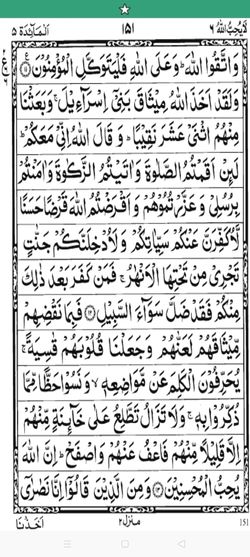 لَا يُحِبُّ اللّٰهُ ٦ ١٥١ اَلْمَآئِدَة ٥
وَاتَّقُوا اللّٰهَ ؕ وَعَلَى اللّٰهِ فَلْيَتَوَكَّلِ الْمُؤْمِنُوْنَ ﴿۱۱﴾
وَلَقَدْ اَخَذَ اللّٰهُ مِيْثَاقَ بَنِيْۤ اِسْرَآءِيْلَ ۚ وَبَعَثْنَا
مِنْهُمُ اثْنَيْ عَشَرَ نَقِيْبًا ؕ وَقَالَ اللّٰهُ اِنِّيْ مَعَكُمْ ؕ
لَئِنْ اَقَمْتُمُ الصَّلٰوةَ وَاٰتَيْتُمُ الزَّكٰوةَ وَاٰمَنْتُمْ
بِرُسُلِيْ وَعَزَّرْتُمُوْهُمْ وَاَقْرَضْتُمُ اللّٰهَ قَرْضًا حَسَنًا
لَّاُكَفِّرَنَّ عَنْكُمْ سَيِّاٰتِكُمْ وَلَاُدْخِلَنَّكُمْ جَنّٰتٍ
تَجْرِيْ مِنْ تَحْتِهَا الْاَنْهٰرُ ۚ فَمَنْ كَفَرَ بَعْدَ ذٰلِكَ
مِنْكُمْ فَقَدْ ضَلَّ سَوَآءَ السَّبِيْلِ ﴿۱۲﴾ فَبِمَا نَقْضِهِمْ
مِّيْثَاقَهُمْ لَعَنّٰهُمْ وَجَعَلْنَا قُلُوْبَهُمْ قٰسِيَةً ۚ
يُحَرِّفُوْنَ الْكَلِمَ عَنْ مَّوَاضِعِهٖ ۙ وَنَسُوْا حَظًّا مِّمَّا
ذُكِّرُوْا بِهٖ ۚ وَلَا تَزَالُ تَطَّلِعُ عَلٰى خَآئِنَةٍ مِّنْهُمْ
اِلَّا قَلِيْلًا مِّنْهُمْ فَاعْفُ عَنْهُمْ وَاصْفَحْ ؕ اِنَّ اللّٰهَ
يُحِبُّ الْمُحْسِنِيْنَ ﴿۱۳﴾ وَمِنَ الَّذِيْنَ قَالُوْۤا اِنَّا نَصٰرٰۤى
مَنْزِل ٢ اَخَذْنَا
151